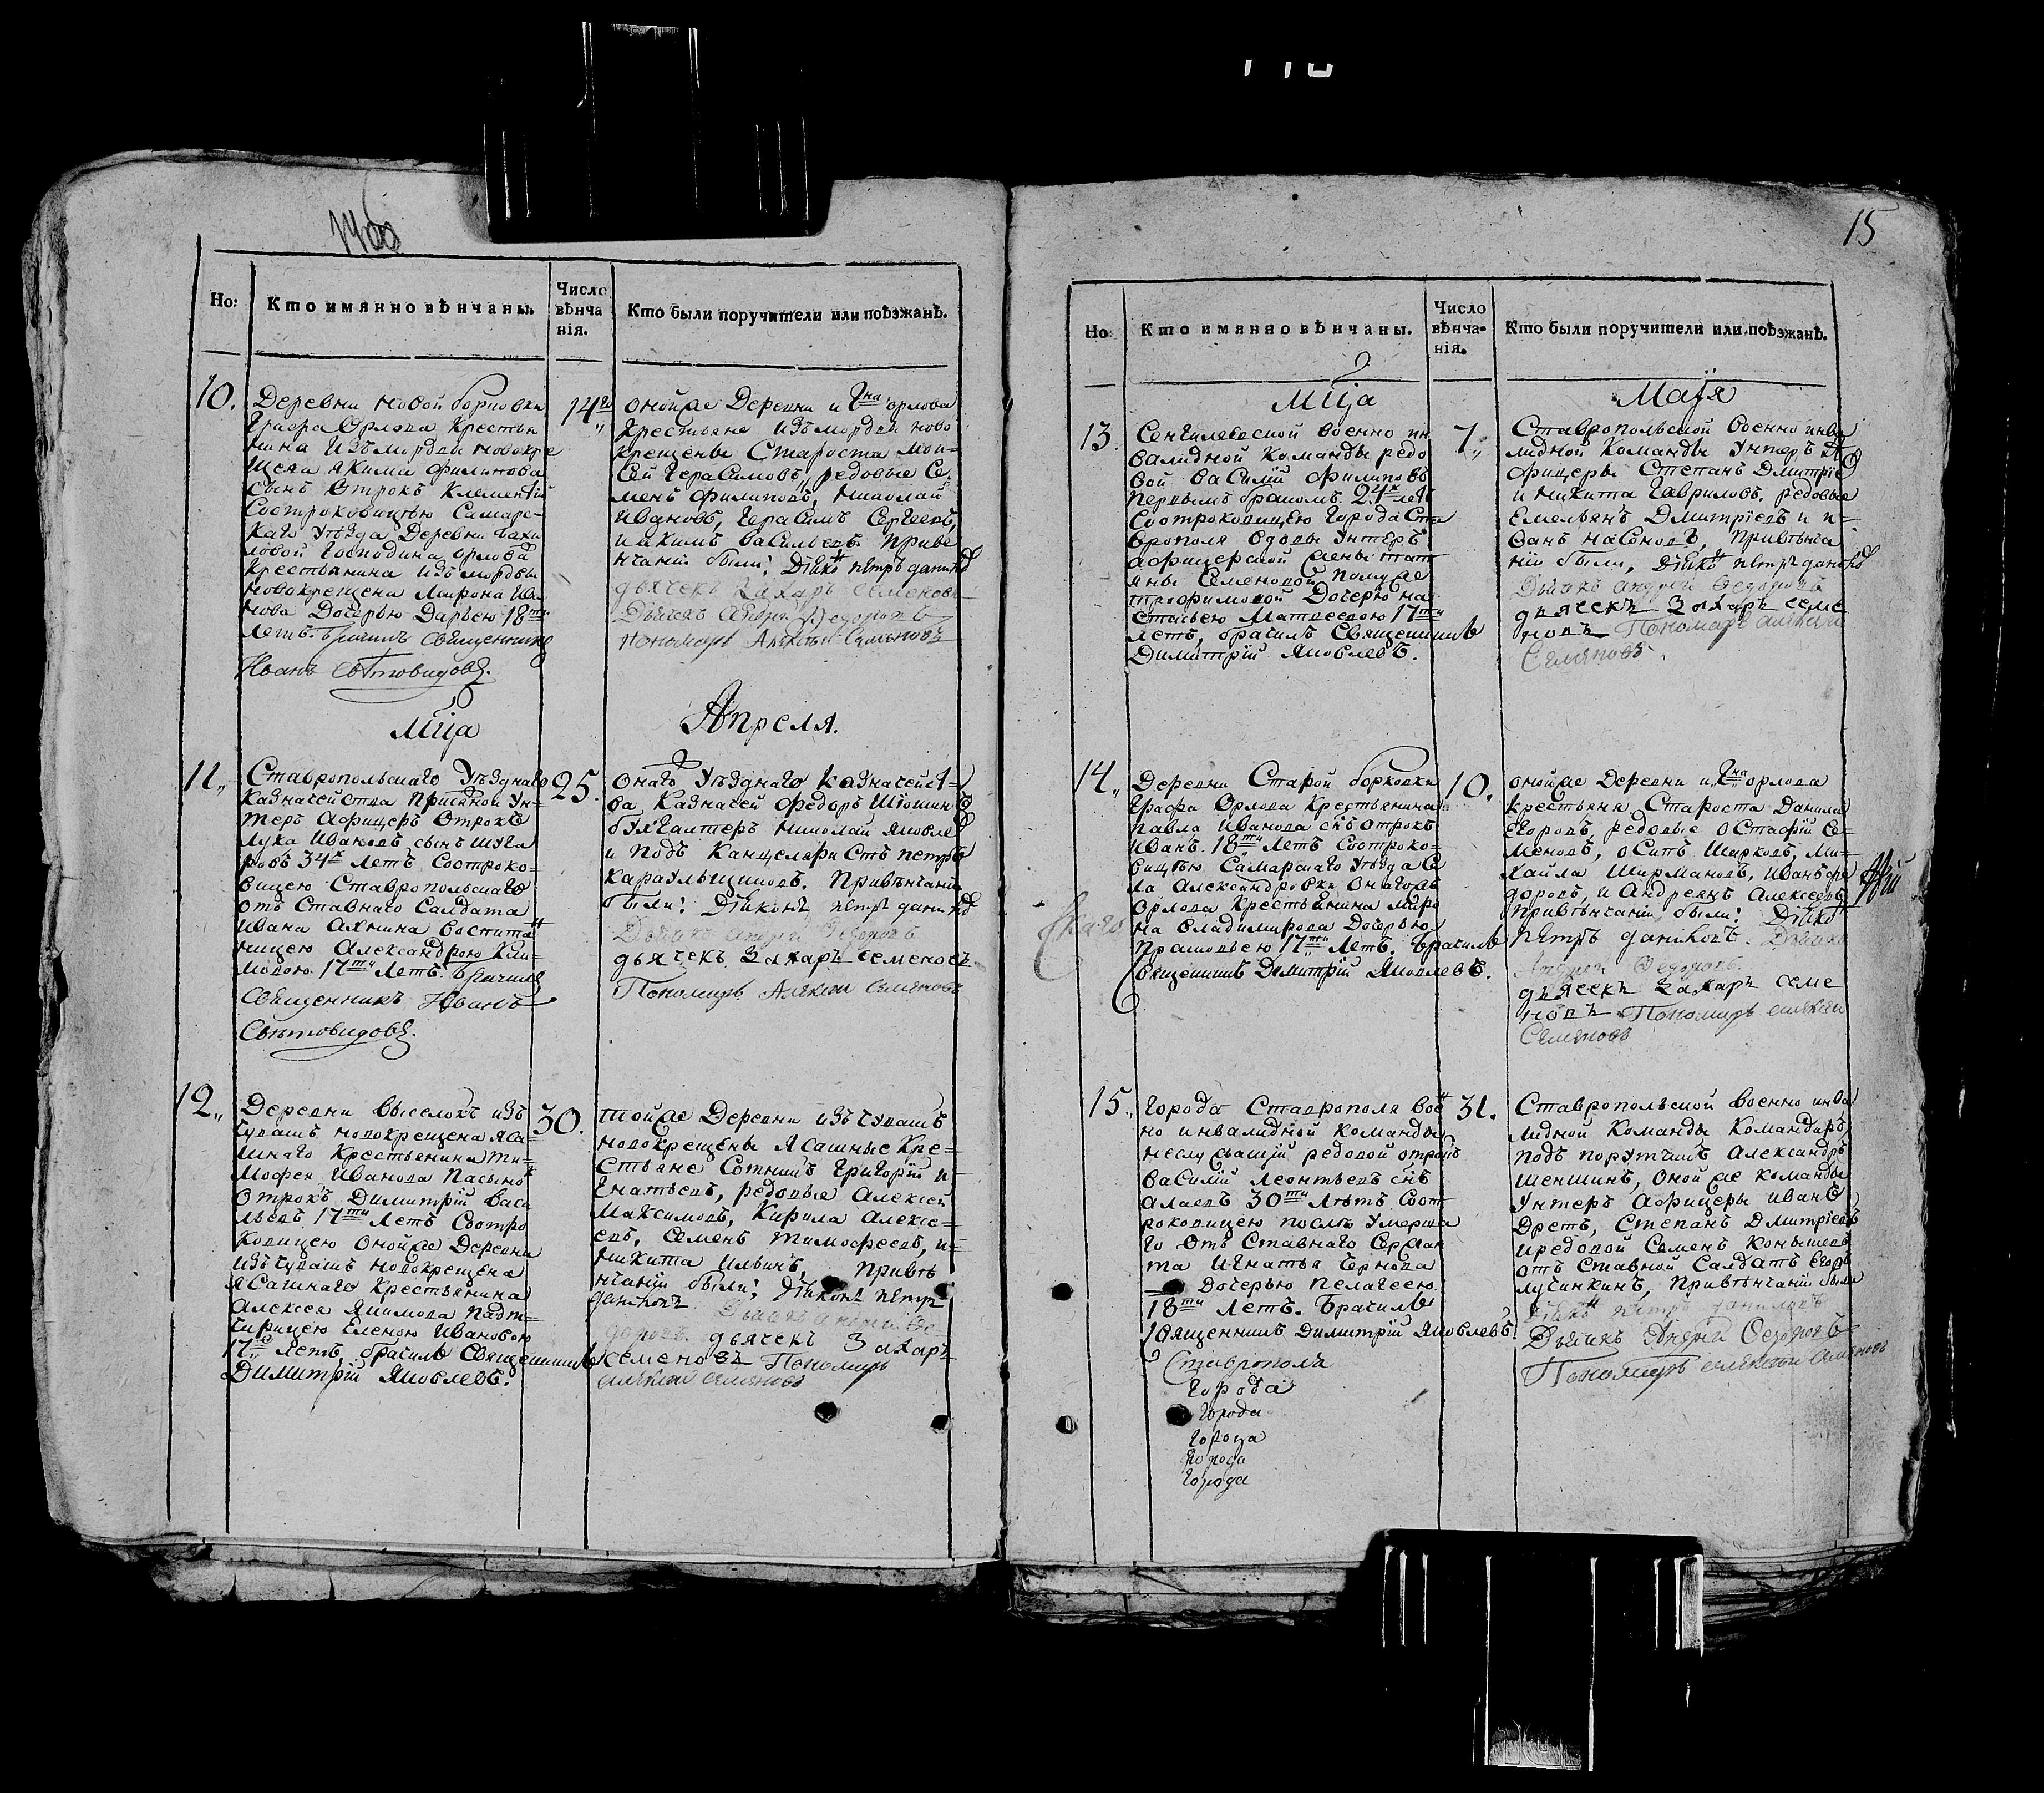 14об
Но:
Кто имянно вѣнчаны.
Число вѣнча нія.
Кто были поручители или поѣзжанѣ.
10.
Деревни Новой борковки
Графа Орлова Крестья
нина Изъ мордвы новокре
щена якима филипова
сынъ Отрокъ Клементїй
Соотроковицею Самарс-
каго уѣзда Деревни Бахи
ловой Господина орлова
крестьянина изъ мордвы
новокрещена Мирона Ива
нова Дочерью Дарьею 18ти
летъ. Брачилъ Священникъ
Иванъ Свѣтовидовъ.
14го
оной же Деревни и Гна орлова
крестьяне Изъ мордвы ново
крещены Староста Мои-
сей Герасимовъ, редовые Се
менъ филиповъ, Николай
Ивановъ, Герасимъ Сергеевъ,
и акимъ васильевъ. Приве
нчанїи были: Дїаконъ петръ данило
дьячекъ Захаръ Семеновъ
Дьячекъ Андрей Федоровъ
пономарь Алексѣй Семеновъ
Мца
Апреля.
11„
Ставропольскаго Уѣзднаго
Казначейства Присяжной Ун-
теръ Афицеръ Отрокъ
Лука Ивановъ сынъ шуга
ровъ 34х летъ Соотроко-
вицею Ставропольскаго
отъ Ставнаго Салдата
Ивана Аянина воспитан
ницею Александрою Кли-
мовою 17ти летъ. Брачилъ
Священникъ Иванъ
Свѣтовидовъ.
25.
онаго Уѣзднаго казначейст-
ва, Казначей федоръ Шїошин
бухгалтеръ николай яковле
и подъ канцеляристъ петръ
караульщиковъ. Привѣнчаны
были: Дїаконъ петръ данило
Дьячекъ андрей Федоровъ
дьячекъ Захаръ семеновъ
Пономарь Алексей Семеновъ
12„
Деревни выселокъ изъ
чувашъ новокрещена яса-
шнаго крестьянина Ти-
мофея Иванова Пасынок
отрокъ Димитрїй васи
льевъ 17ти летъ Соотро
ковицею оной же Деревни
изъ чувашъ новокрещена
ясашнаго крестьянина
Алексея Якимова падт-
черицею Еленою Ивановою
17ти летъ, брачилъ Священникъ
Димитрїй Яковлевъ.
30.
той же Деревни изъ чувашъ
новокрещены Ясашные кре-
стьяне Сотникъ Григорїй и
гнатьевъ, редовыя Алексей
Максимовъ, Кирила Алексе-
евъ, семенъ тимофеевъ, и
никита ильинъ, привѣ
нчанїи были: Дїаконъ петр
даниловъ Дьячекъ андрей Фе-
доровъ дьячекъ Захаръ
семеновъ Пономарь
алексеи семеновъ
15
Но
Кто имянно вѣнчаны.
Число вѣнча- нія.
Кто были поручители или поѣзжанѣ.
Мца
Маїя
13.
Сенгилеевской военно ин
валидной команды редо
вой василїй филиповъ
первымъ бракомъ 24х летъ
Соотроковицею города Ста
врополя вдовы унтеръ
афицерской жены тать
яны Семеновой
трофимовой Дочерью на
стасьею Матвеевою 17ти
летъ, брачилъ Священникъ
Димитрїй Яковлевъ.
7„
Ставропольской военно инва
лидной команды унтеръ А
фицеры Степанъ Дмитрїе
и никита Гавриловъ, редовые
Емельянъ Дмитрїевъ и и-
ванъ насоновъ, привѣнча
нїи были, дїаконъ петръ данило
Дьячекъ андрей Федоровъ
дьячекъ Захаръ семе
новъ Пономарь алексеи
Семеновъ
14„
Деревни Старой борковки
Графа Орлова Крестьянина
павла Иванова снъ отрокъ
Иванъ 18ти летъ Соотроко-
вицею Самарскаго уѣзда Се
ла Александровки онагожъ
орлова Крестьянина Миро
на владимирова Дочерью
прасковьею 17ти летъ. Брачилъ
Священникъ Димитрїй Яковлевъ.
каго
10.
оной же Деревни и Гна орлова
крестьяне Староста Данила
Егоровъ, редовые остафїй се-
меновъ, осипъ Ширковъ, ми-
хайла Ширмановъ, Иванъ фе
доровъ, и Андреянъ Алексеевъ
привѣнчанїи были: Дїаконъ
петръ даниловъ. Дьячекъ
Андрей Федоровъ.
дьячекъ Захаръ семе
новъ Пономарь алексеи
Семеновъ
15„
Города Ставрополя вое
но инвалидной команды
неслужащїй редовой отрокъ
василїй Леонтьевъ снъ
алаевъ 30ти лѣтъ Соот
роковицею послѣ умерша
го отъ Ставнаго Сержан
та Игнатья Чернова
Дочерью пелагеею
18ти летъ. Брачилъ
Священникъ Димитрїй Яковлевъ.
Ставрополя
города
города
города
города
города
31.
Ставропольской военно инва
лидной команды командиръ
подъ порутчикъ Александръ
шеншинъ, оной же команды
унтеръ Афицеры Иванъ
Степанъ Дмитрїевъ
и редовой Семенъ конышевъ
отъ Ставной Салдатъ Егоръ
лучинкинъ, привѣнчанїи были
дїаконъ петръ даниловъ
Дьячекъ Андрей Федоровъ
Пономарь алексеи Семеновъ